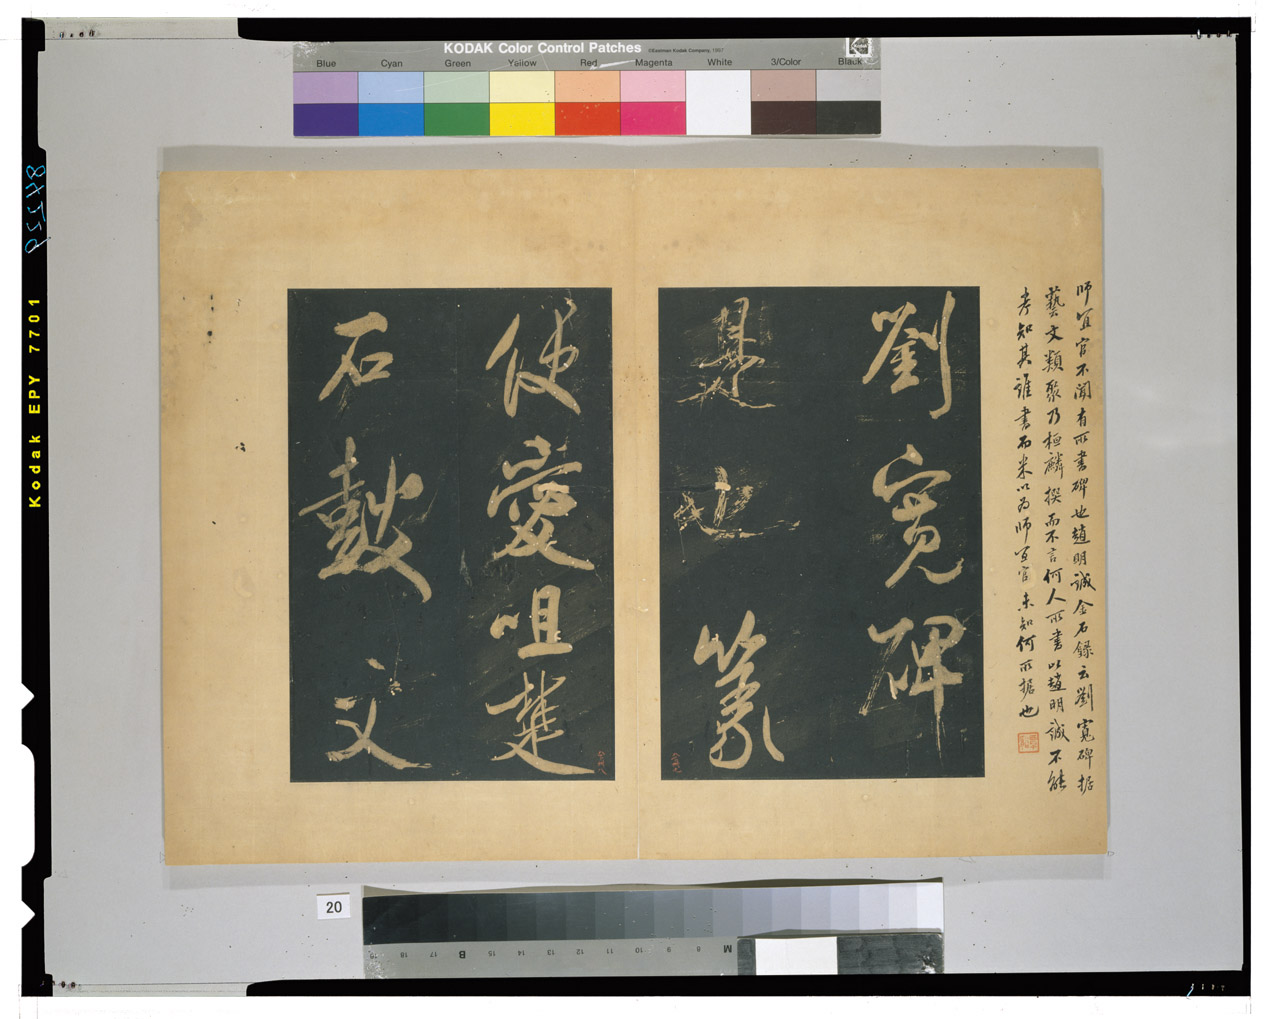 KODAK Color Control Patches ©Eastman Kodak Company, 1997
Kodak
Blue Cyan Green Yellow Red Magenta White 3/Color Black
師宜官不聞有所書碑也趙明誠金石錄云劉寬碑据
藝文類聚乃桓麟撰而不言何人所書以趙明誠不能
考知其誰書而米以為師宜官未知何所据也
劉寬碑
是也篆
便愛咀楚
石鼓文
Kodak EPY 7701
20
19 18 17 B 15 14 13 12 11 10 9 8 M